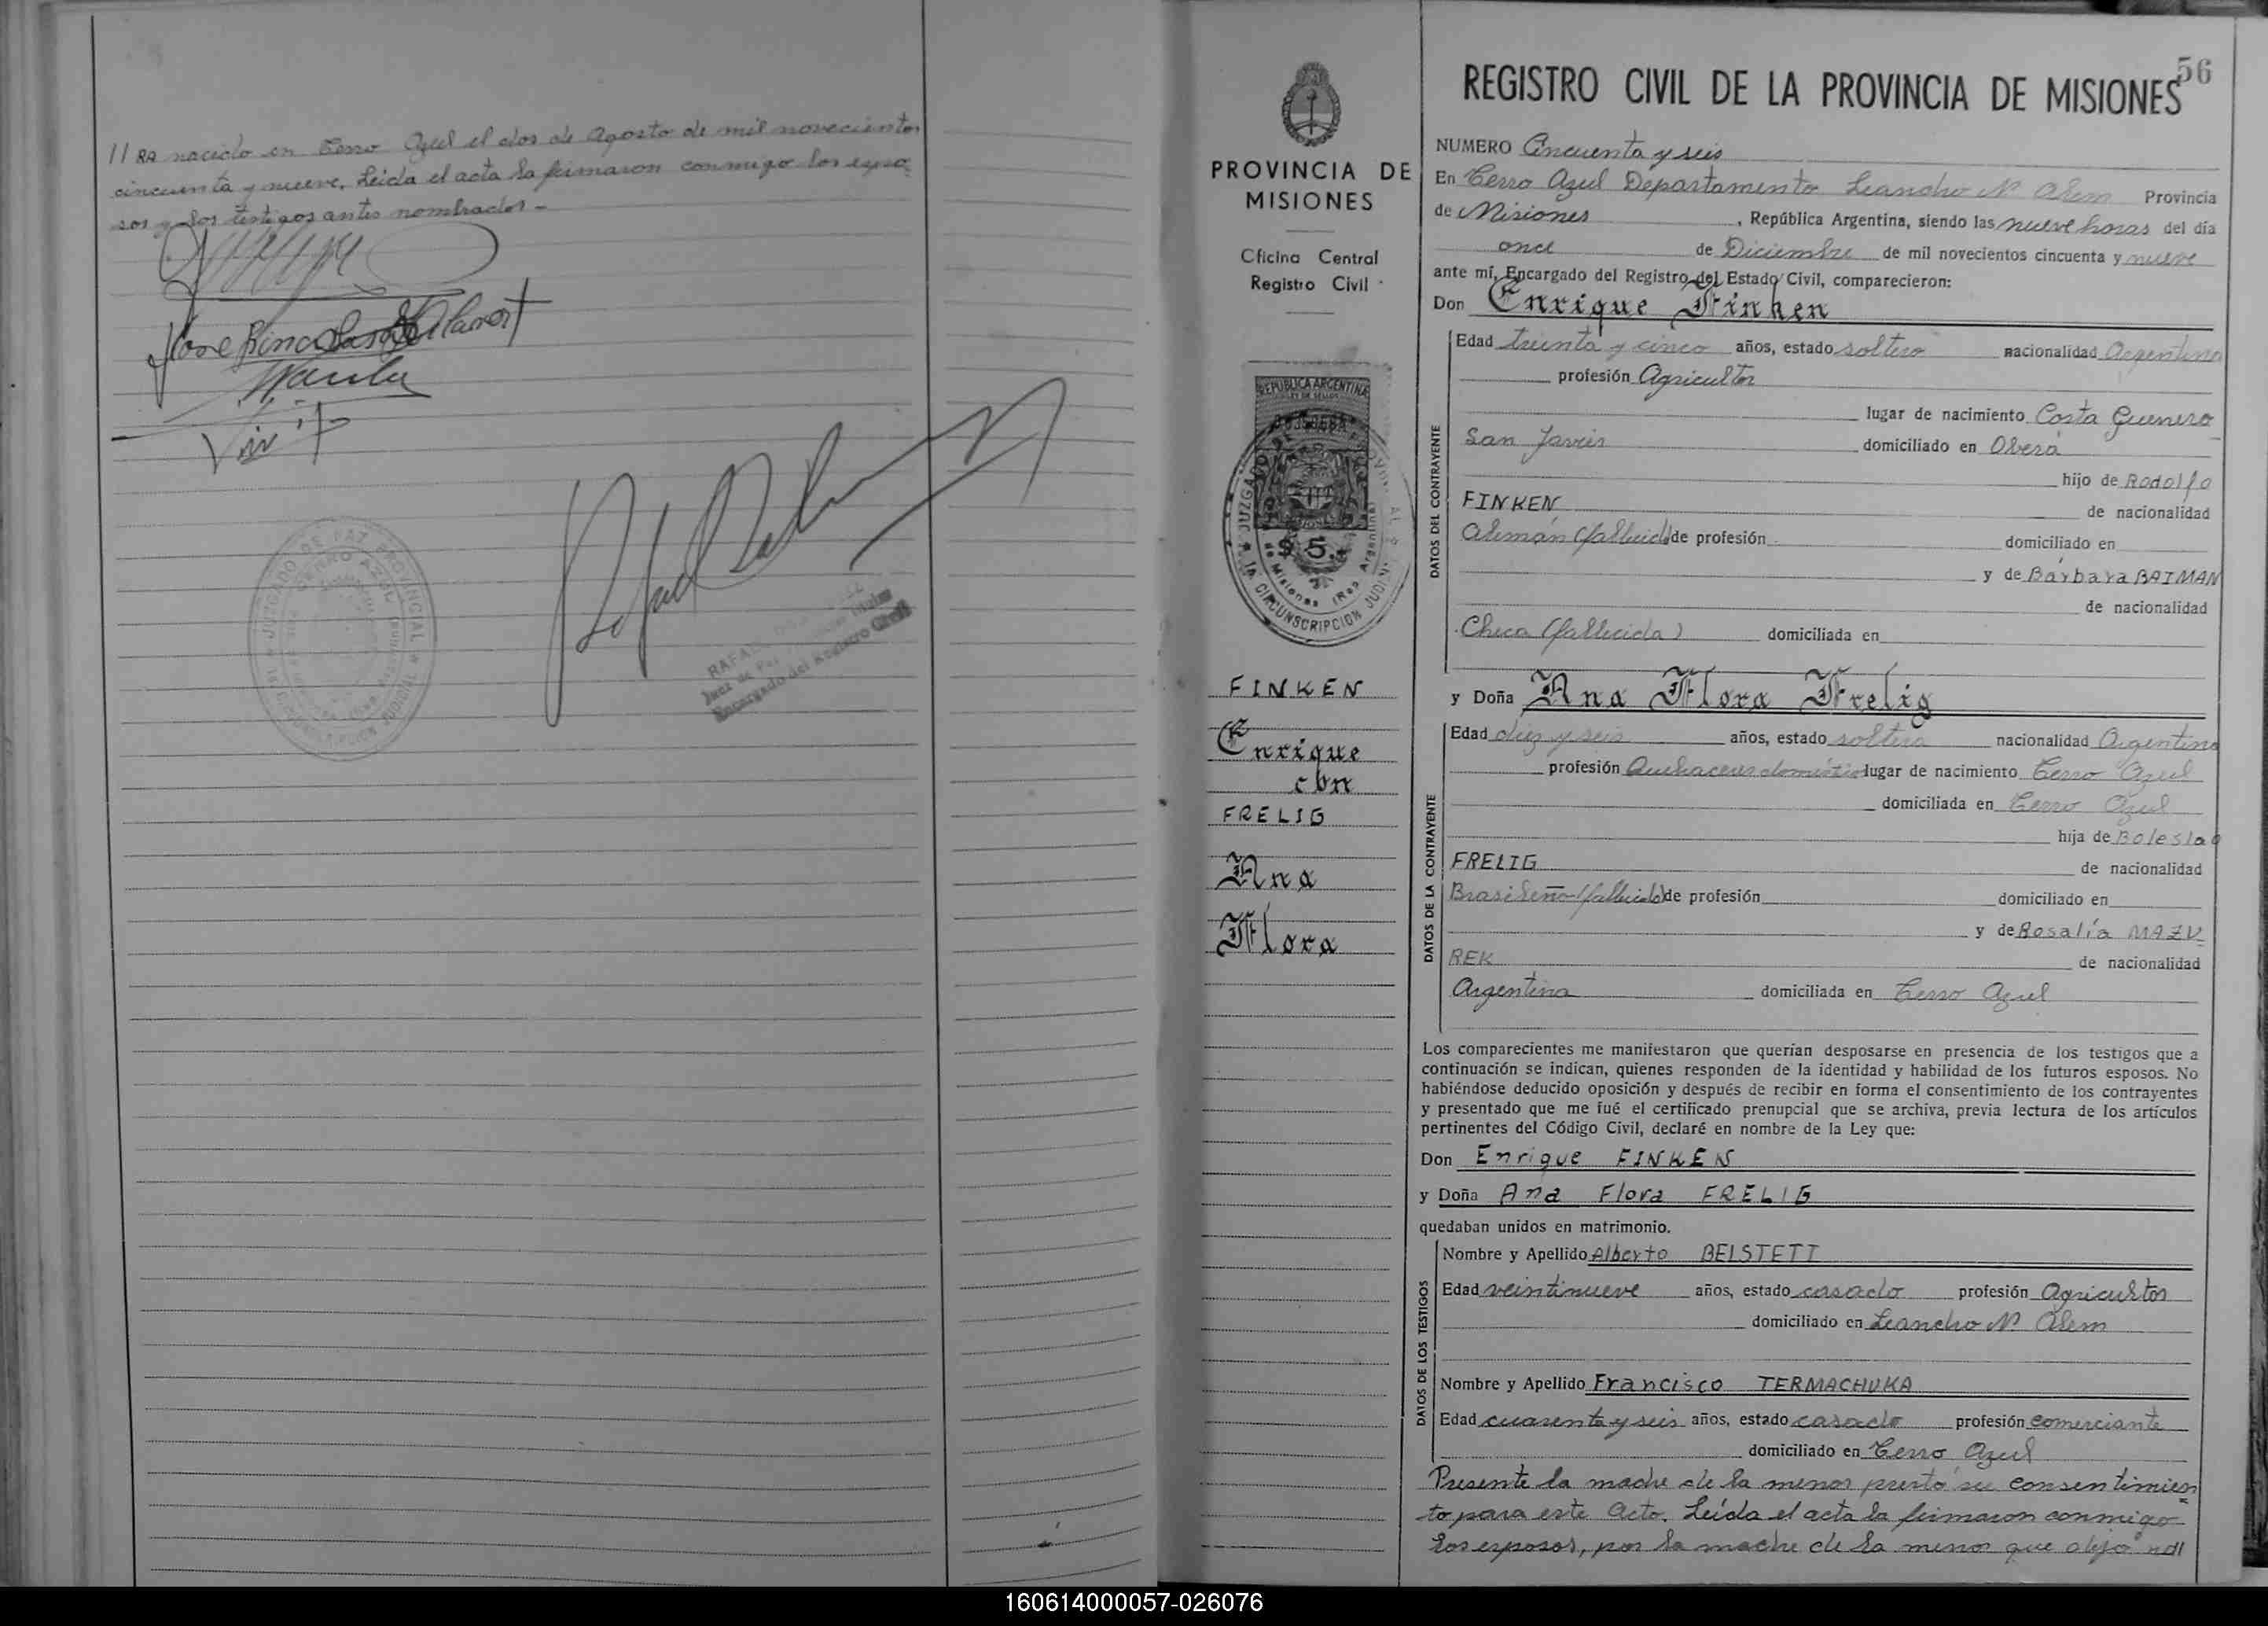 // RA nacido en Cerro Azul el dos de Agosto de mil novecientos
cincuenta y nueve. Leida el acta la firmaron conmigo los espo
sos y los testigos antes nombrados -
JUZGADO DE PAZ PROVINCIAL
CERRO AZUL
Juez de Paz
Encargado del Registro Civil
56
REGISTRO CIVIL DE LA PROVINCIA DE MISIONES
PROVINCIA DE
MISIONES
Oficina Central
Registro Civil
REPUBLICA ARGENTINA
LEY DE SELLOS
$ 5
JUZGADO DE
Misiones
CIRCUNSCRIPCION JUDI
FINKEN
Enrique
con
FRELIG
Ana
Flora
NUMERO Cincuenta y seis
En Cerro Azul Departamento Leandro N. Alem Provincia
de Misiones, República Argentina, siendo las nueve horas del día
once de Diciembre de mil novecientos cincuenta y nueve
ante mí, Encargado del Registro del Estado Civil, comparecieron:
Don Enrique Finken
DATOS DEL CONTRAYENTE
Edad treinta y cinco años, estado soltero nacionalidad Argentina
profesión Agricultor
lugar de nacimiento Costa Guerrero
San Javier domiciliado en Oberá
hijo de Rodolfo
FINKEN de nacionalidad
Alemán (fallecido) de profesión domiciliado en
y de Bárbara BATMAN
de nacionalidad
Checa (fallecida) domiciliada en
y Doña Ana Flora Frelig
DATOS DE LA CONTRAYENTE
Edad diez y seis años, estado soltera nacionalidad Argentina
profesión Quehaceres domésticos lugar de nacimiento Cerro Azul
domiciliada en Cerro Azul
hija de Boleslao
FRELIG de nacionalidad
Brasileño (fallecido) de profesión domiciliado en
y de Rosalía MAZU
REK de nacionalidad
Argentina domiciliada en Cerro Azul
Los comparecientes me manifestaron que querían desposarse en presencia de los testigos que a
continuación se indican, quienes responden de la identidad y habilidad de los futuros esposos. No
habiéndose deducido oposición y después de recibir en forma el consentimiento de los contrayentes
y presentado que me fué el certificado prenupcial que se archiva, previa lectura de los artículos
pertinentes del Código Civil, declaré en nombre de la Ley que:
Don Enrique FINKEN
y Doña Ana Flora FRELIG
quedaban unidos en matrimonio.
DATOS DE LOS TESTIGOS
Nombre y Apellido Alberto BELSTETT
Edad veintinueve años, estado casado profesión Agricultor
domiciliado en Leandro N. Alem
Nombre y Apellido Francisco TERMACHUKA
Edad cuarenta y seis años, estado casado profesión comerciante
domiciliado en Cerro Azul
Presente la madre de la menor prestó su consentimien
to para este Acto. Leída el acta la firmaron conmigo
los esposos, por la madre de la menor que dijo no //
160614000057-026076